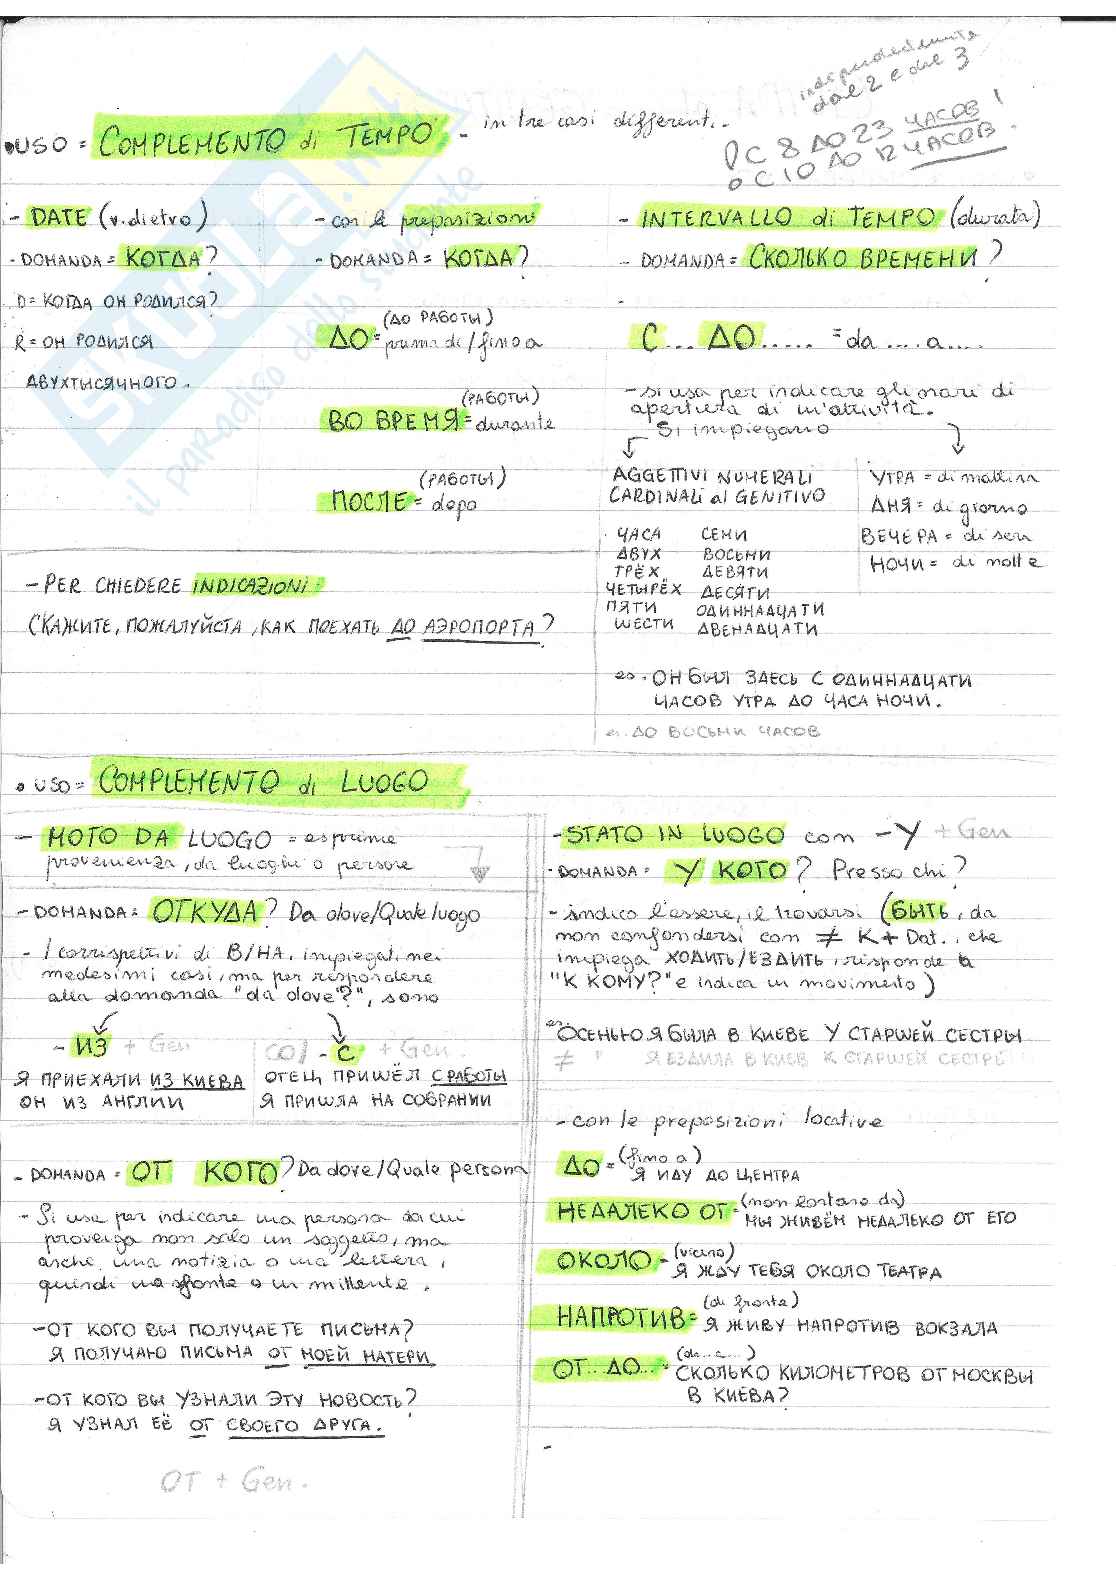 indipendentemente
dal 2 e dal 3
• USO = COMPLEMENTO di TEMPO - in tre casi differenti..
! С 8 ДО 23 ЧАСОВ !
• С 10 ДО 12 ЧАСОВ.
- DATE (v. dietro)
- DOMANDA = КОГДА?
D = КОГДА ОН РОДИЛСЯ?
R = ОН РОДИЛСЯ
ДВУХТЫСЯЧНОГО.
- con le preposizioni
- DOMANDA = КОГДА?
(ДО РАБОТЫ)
ДО = prima di / fino a
(РАБОТЫ)
ВО ВРЕМЯ = durante
(РАБОТЫ)
ПОСЛЕ = dopo
- INTERVALLO di TEMPO (durata)
- DOMANDA = СКОЛЬКО ВРЕМЕНИ?
-
С... ДО..... = da .... a....
- si usa per indicare gli orari di
apertura di un'attività.
Si impiegano
AGGETTIVI NUMERALI
CARDINALI al GENITIVO
ЧАСА СЕМИ
ДВУХ ВОСЬМИ
ТРЁХ ДЕВЯТИ
ЧЕТЫРЁХ ДЕСЯТИ
ПЯТИ ОДИННАДЦАТИ
ШЕСТИ ДВЕНАДЦАТИ
УТРА = di mattina
ДНЯ = di giorno
ВЕЧЕРА = di sera
НОЧИ = di notte
es. ОН БЫЛ ЗДЕСЬ С ОДИННАДЦАТИ
ЧАСОВ УТРА ДО ЧАСА НОЧИ.
es. ДО ВОСЬМИ ЧАСОВ
- PER CHIEDERE INDICAZIONI:
СКАЖИТЕ, ПОЖАЛУЙСТА, КАК ПОЕХАТЬ ДО АЭРОПОРТА?
• USO = COMPLEMENTO di LUOGO
- MOTO DA LUOGO = esprime
provenienza, da luoghi o persone
- DOMANDA = ОТКУДА? Da dove/Quale luogo
- I corrispettivi di В/НА, impiegati nei
medesimi casi, ma per rispondere
alla domanda "da dove?", sono
- ИЗ + Gen
Я ПРИЕХАЛИ ИЗ КИЕВА
ОН ИЗ АНГЛИИ
СО/ - С + Gen.
ОТЕЦ ПРИШЁЛ С РАБОТЫ
Я ПРИШЛА НА СОБРАНИИ
- DOMANDA = ОТ КОГО? Da dove/Quale persona
- Si usa per indicare una persona da cui
provenga non solo un soggetto, ma
anche una notizia o una lettera,
quindi una fonte o un mittente.
- ОТ КОГО ВЫ ПОЛУЧАЕТЕ ПИСЬМА?
Я ПОЛУЧАЮ ПИСЬМА ОТ МОЕЙ МАТЕРИ
- ОТ КОГО ВЫ УЗНАЛИ ЭТУ НОВОСТЬ?
Я УЗНАЛ ЕЁ ОТ СВОЕГО ДРУГА.
ОТ + Gen.
- STATO IN LUOGO com - У + Gen
- DOMANDA = У КОГО? Presso chi?
- indica l'essere, il trovarsi (БЫТЬ, da
non confondersi con ≠ К + Dat., che
impiega ХОДИТЬ/ЕЗДИТЬ, risponde a
"К КОМУ?" e indica un movimento)
es. ОСЕНЬЮ Я БЫЛА В КИЕВЕ У СТАРШЕЙ СЕСТРЫ
≠ " Я ЕЗДИЛА В КИЕВ К СТАРШЕЙ СЕСТРЕ
- con le preposizioni locative
ДО = (fino a)
Я ИДУ ДО ЦЕНТРА
НЕДАЛЕКО ОТ = (non lontano da)
МЫ ЖИВЁМ НЕДАЛЕКО ОТ ЕГО
ОКОЛО - (vicino)
Я ЖДУ ТЕБЯ ОКОЛО ТЕАТРА
НАПРОТИВ = (di fronte)
Я ЖИВУ НАПРОТИВ ВОКЗАЛА
ОТ... ДО... = (da...a...)
СКОЛЬКО КИЛОМЕТРОВ ОТ МОСКВЫ
В КИЕВА?
-
SKUOLA.net
il paradiso dello studente